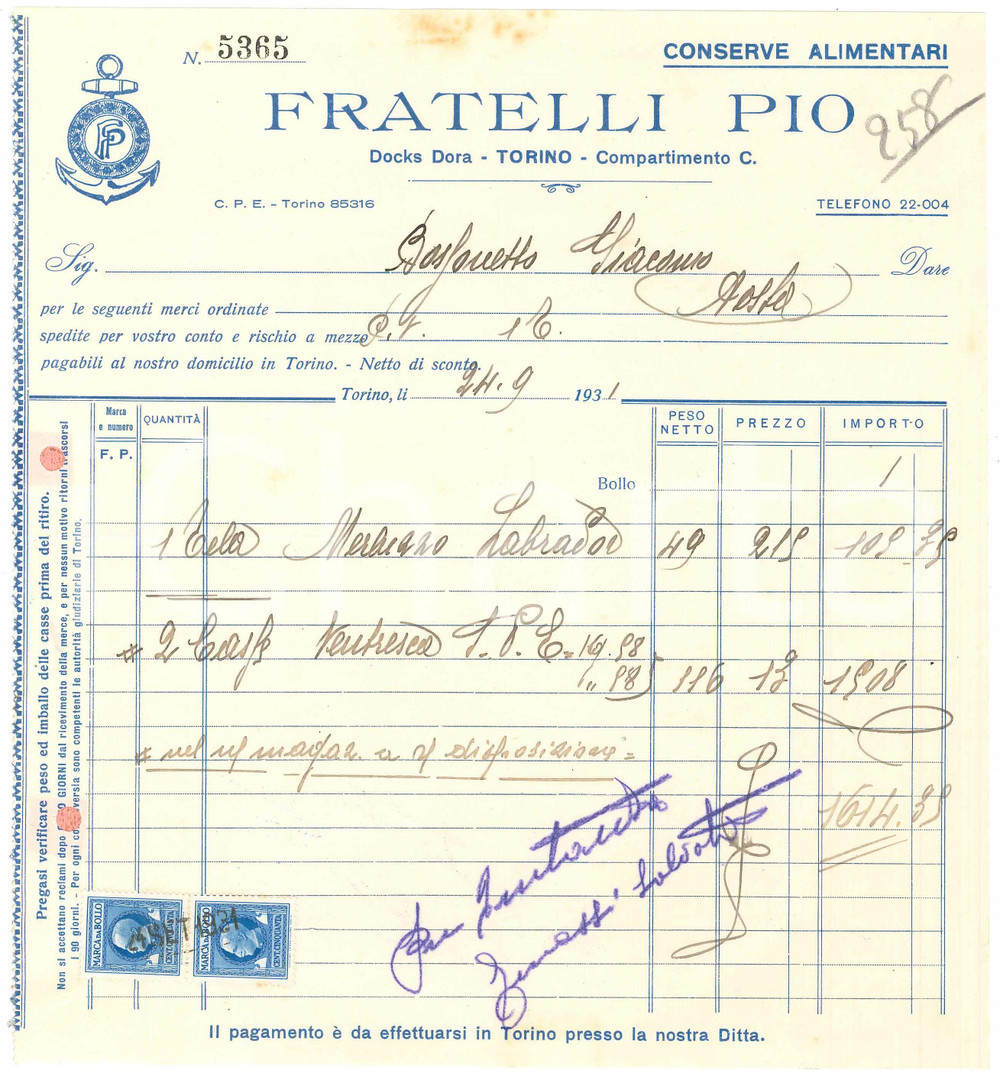 N. 5365
CONSERVE ALIMENTARI
FP
FRATELLI PIO
258
Docks Dora - TORINO - Compartimento C.
C. P. E. - Torino 85316
TELEFONO 22-004
Sig. Giacomo Dare
Aosta
per le seguenti merci ordinate
spedite per vostro conto e rischio a mezzo P.V.
pagabili al nostro domicilio in Torino. - Netto di sconto.
Torino, li 24.9 1931
Marca e numero
QUANTITÀ
PESO NETTO
PREZZO
IMPORTO
F. P.
Bollo 1
1 Tela Merluzzo Labrador 49 215 105 35
# 2 Casse Ventresca T.P.E = Kg. 58
" 58 116 13 1508
# nel magaz. a disposizione =
1614.35
Per
Soldato
MARCA DA BOLLO
CENT. CINQUANTA
MARCA DA BOLLO
CENT. CINQUANTA
24 SET 1931
Pregasi verificare peso ed imballo delle casse prima del ritiro.
Non si accettano reclami dopo GIORNI dal ricevimento della merce, e per nessun motivo ritorni trascorsi
i 90 giorni. - Per ogni controversia sono competenti le autorità giudiziarie di Torino.
Il pagamento è da effettuarsi in Torino presso la nostra Ditta.